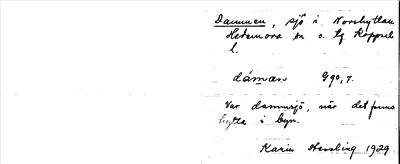 Dammen, sjö i Norshyttan
Hedemora sn o. tg Kopparb.
l.
dámən G90, 7.
Var dammsjö, när det fanns
hytta i byn.
Karin Hessling 1929